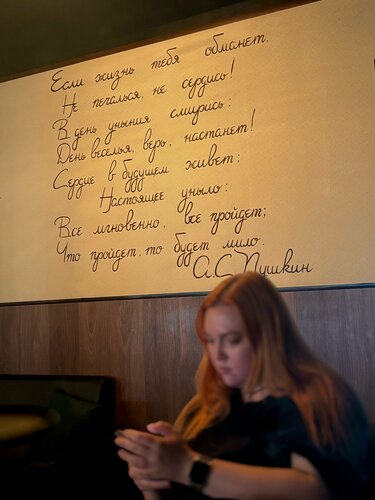 Если жизнь тебя обманет,
Не печалься, не сердись!
В день уныния смирись:
День веселья, верь, настанет!
Сердце в будущем живет;
Настоящее уныло:
Все мгновенно, все пройдет;
Что пройдет, то будет мило.
А.С. Пушкин